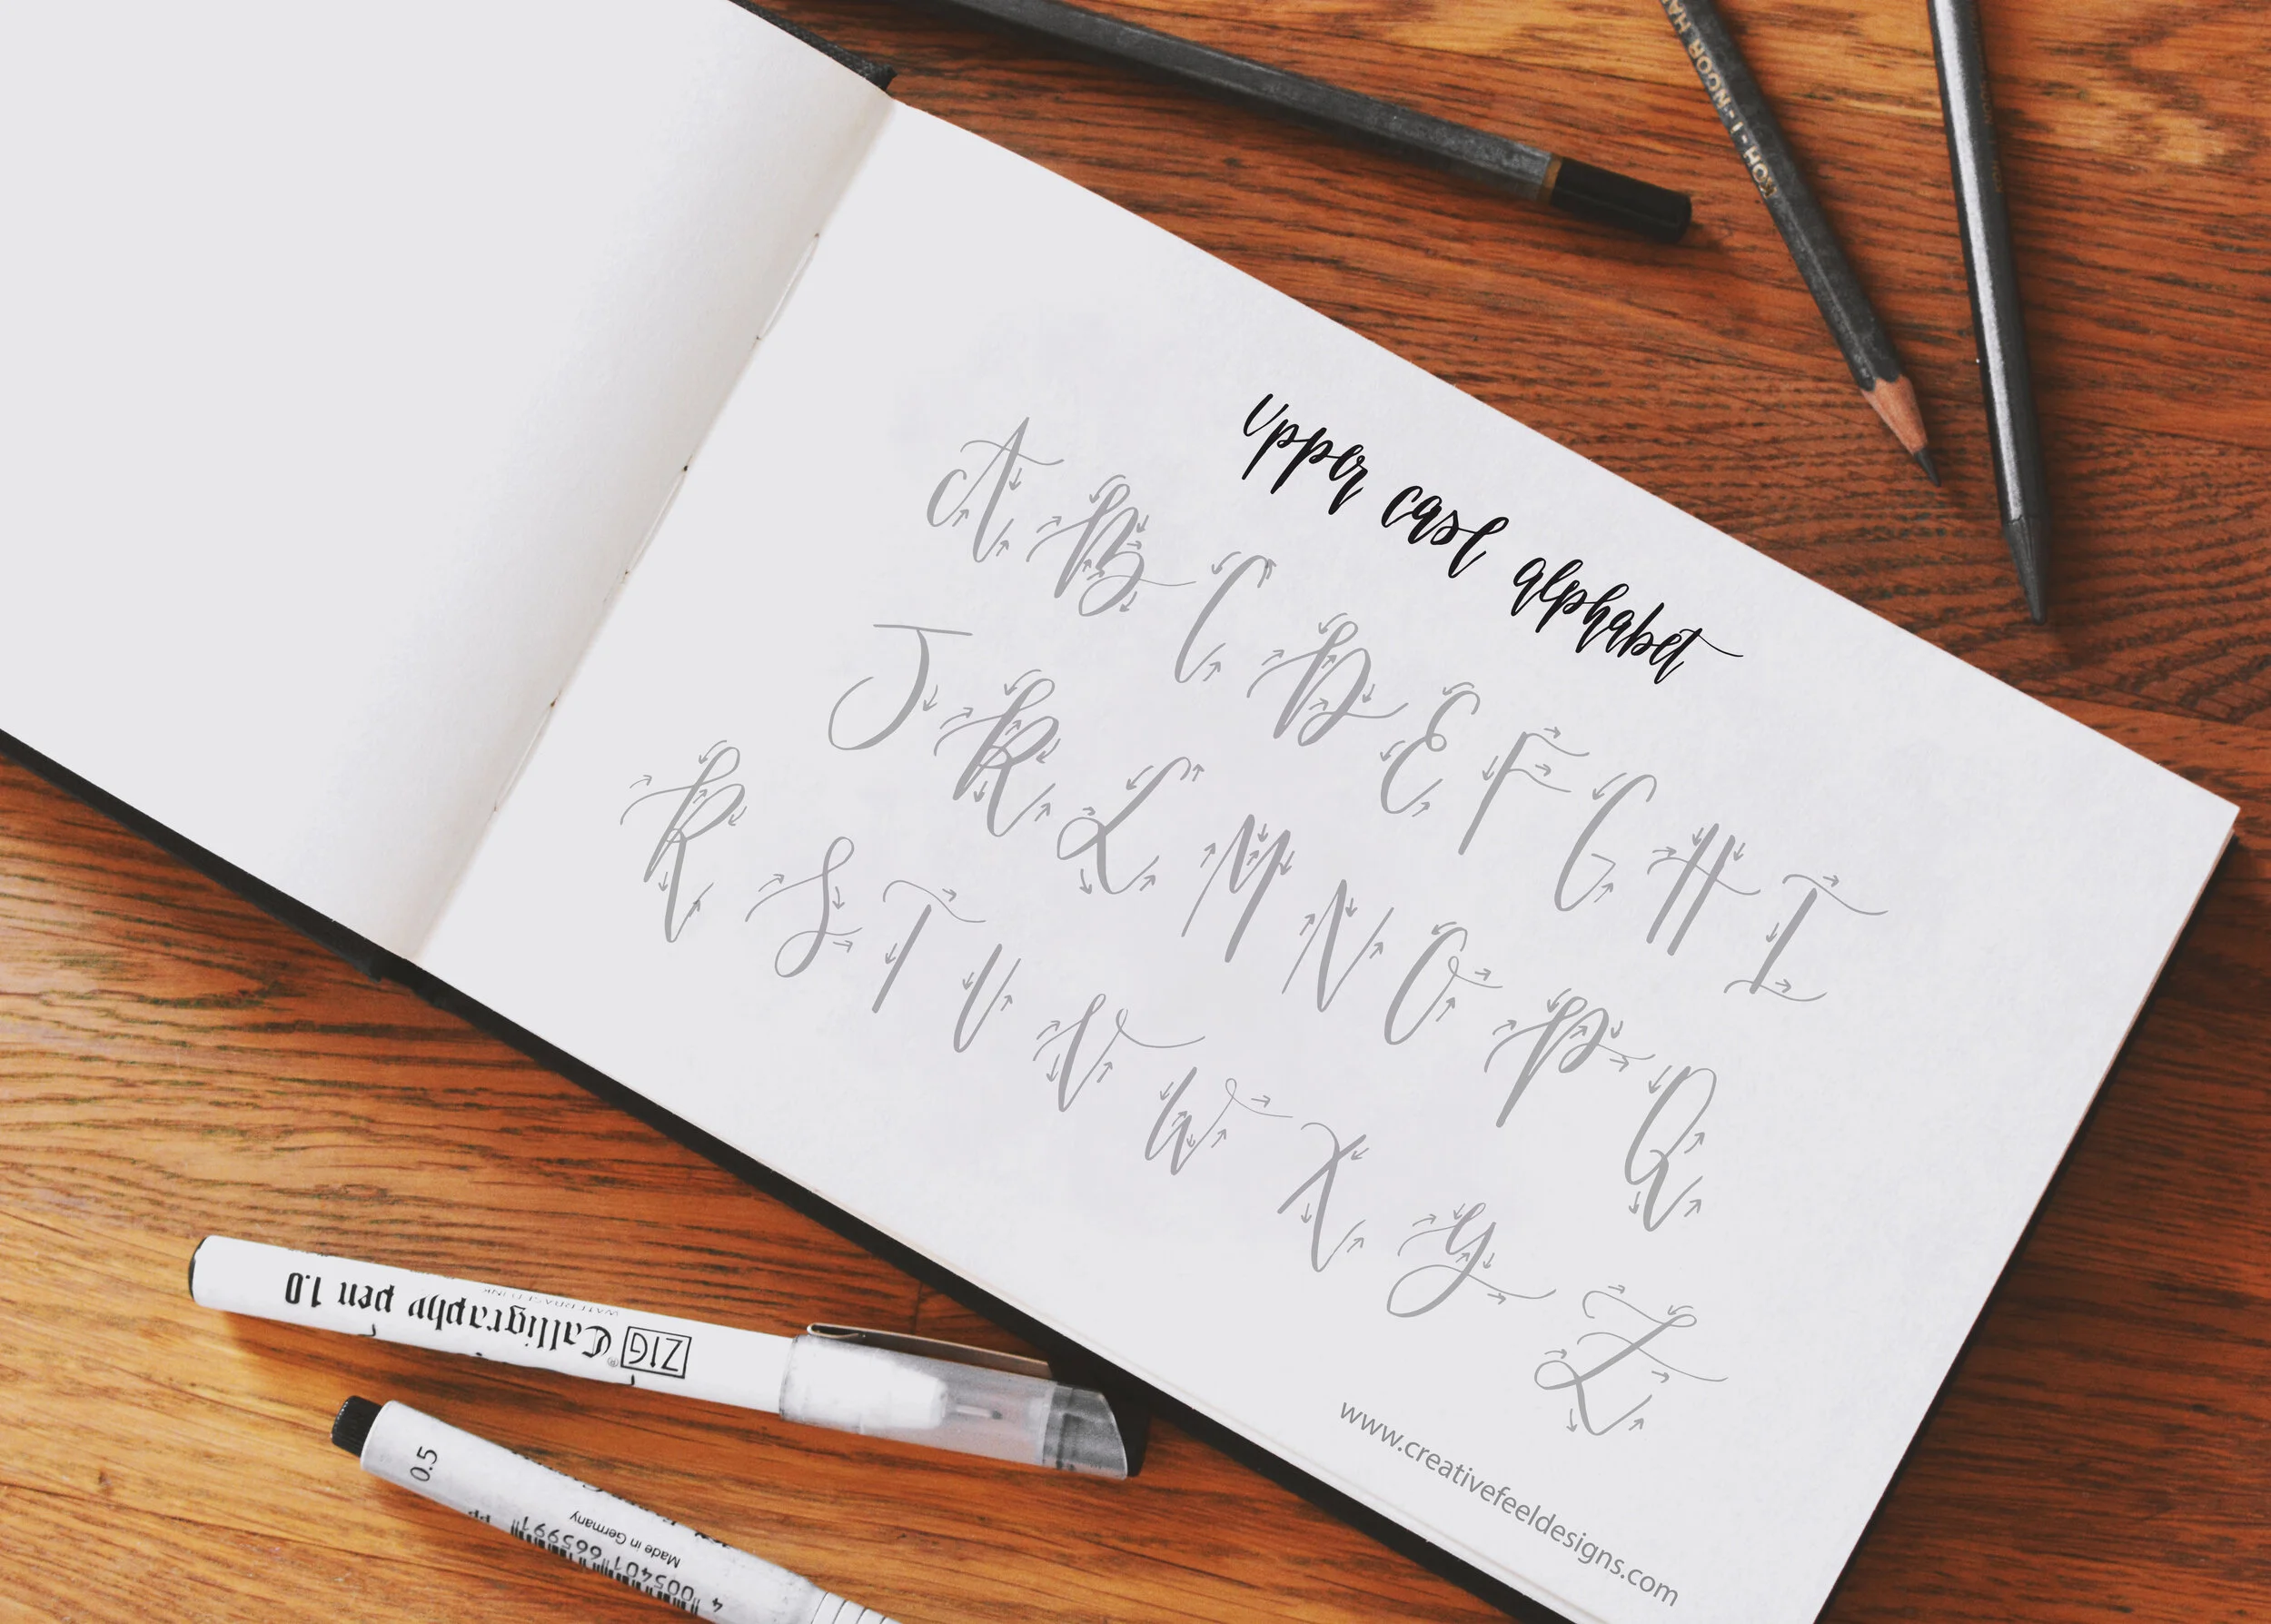 Upper case alphabet
A B C D E F G H I
J K L M N O P Q
R S T U V W X Y Z
www.creativefeeldesigns.com
KOH-I-NOOR HA
ZIG® Calligraphy pen 1.0
WATERBASED INK
0.5
Made in Germany
4 005401 665991